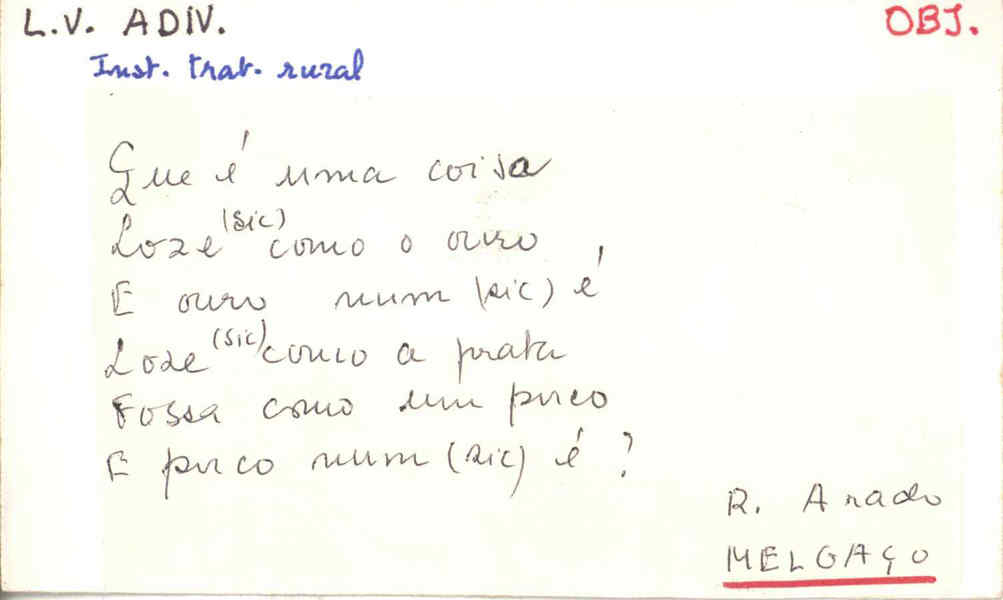 L.V. ADIV.
OBJ.
Inst. trab. rural
Que é uma coisa
Loze (sic) como o ouro
E ouro num (sic) é
Loze (sic) como a prata
Fossa como um porco
E porco num (sic) é?
R. Arado
MELGAÇO